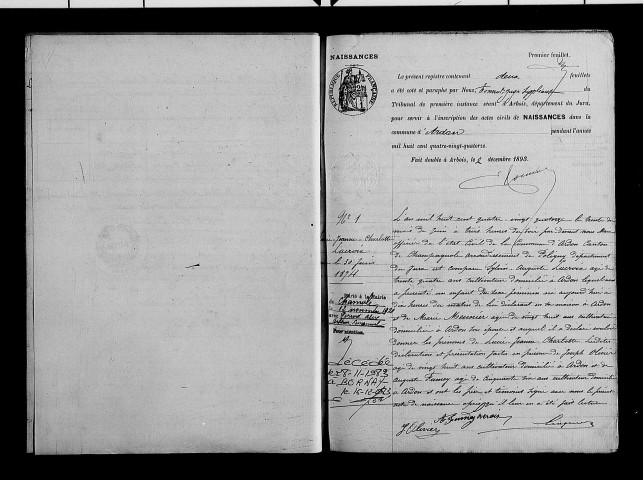 NAISSANCES
Premier feuillet.
RÉPUBLIQUE FRANÇAISE
La présent registre contenant deux feuillets
a été coté et paraphé par Nous, Juge Suppléant du
Tribunal de première instance séant à Arbois, département du Jura,
pour servir à l'inscription des actes civils de NAISSANCES dans la
commune d'Ardon pendant l'année
mil huit cent quatre-vingt-quatorze.
Fait double à Arbois, le 2 décembre 1893.
N° 1
Jeanne-Charlotte
Lacroix
le 30 Juin
1894
Marié à la Mairie
de
le 16 novembre 19
avec
Pour mention
DÉCÉDÉE
le 28-11-1983
à BERNAY
le 16-12-983
L'an mil huit cent quatre-vingt quatorze le trente du
mois de Juin à trois heures du soir par devant nous Maire
officier de l'état civil de la Commune d'Ardon Canton
de Champagnole arrondissement de Poligny département
du Jura est comparu Sylvain-Auguste Lacroix âgé de
trente quatre ans cultivateur domicilié à Ardon lequel nous
a présenté un enfant du sexe féminin né aujourd'hui à
dix heures du matin de lui déclarant en sa maison à Ardon
et de Marie Messonier âgée de vingt huit ans cultivatrice
domiciliée à Ardon son épouse et auquel il a déclaré vouloir
donner les prénoms de Lucie-Jeanne Charlotte Lesdites
déclaration et présentation faites en présence de Joseph Olivier
âgé de vingt huit ans cultivateur domicilié à Ardon et de
Auguste âgé de cinquante six ans cultivateur domicilié
à Ardon et ont les père et témoins signé avec nous le présent
acte de naissance après qu'il leur en a été fait lecture
J Olivier